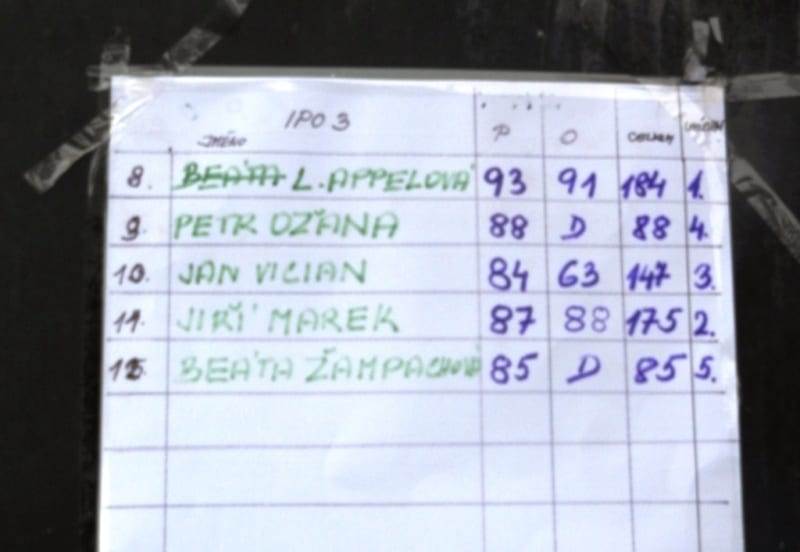 IPO 3
JMÉNO P O CELKEM UMÍSTĚNÍ
8. BEÁTA L. APPELOVÁ 93 91 184 1.
9. PETR OŽANA 88 D 88 4.
10. JAN VICIAN 84 63 147 3.
11. JIŘÍ MAREK 87 88 175 2.
12. BEÁTA ŽAMPACHOVÁ 85 D 85 5.